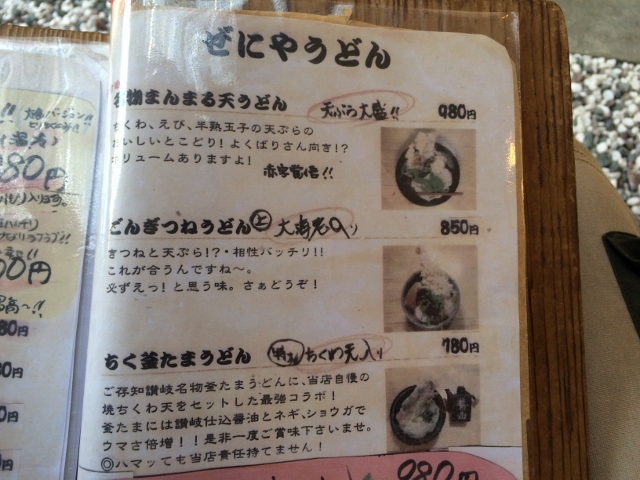 ぜにやうどん
名物まんまる天うどん 天ぷら大盛!! 980円
ちくわ、えび、半熟玉子の天ぷらの
おいしいとこどり!よくばりさん向き!?
ボリュームありますよ!
赤字覚悟!!
ごんぎつねうどん 上 大海老入り 850円
きつねと天ぷら!?・相性バッチリ!!
これが合うんですね〜。
必ずえっ!と思う味。さぁどうぞ!
ちく釜たまうどん ちくわ天入り 780円
ご存知讃岐名物釜たまうどんに、当店自慢の
焼ちくわ天をセットした最強コラボ!
釜たまには讃岐仕込醤油とネギ、ショウガで
ウマさ倍増!!是非一度ご賞味下さいませ。
◎ハマッても当店責任持てません!
980円